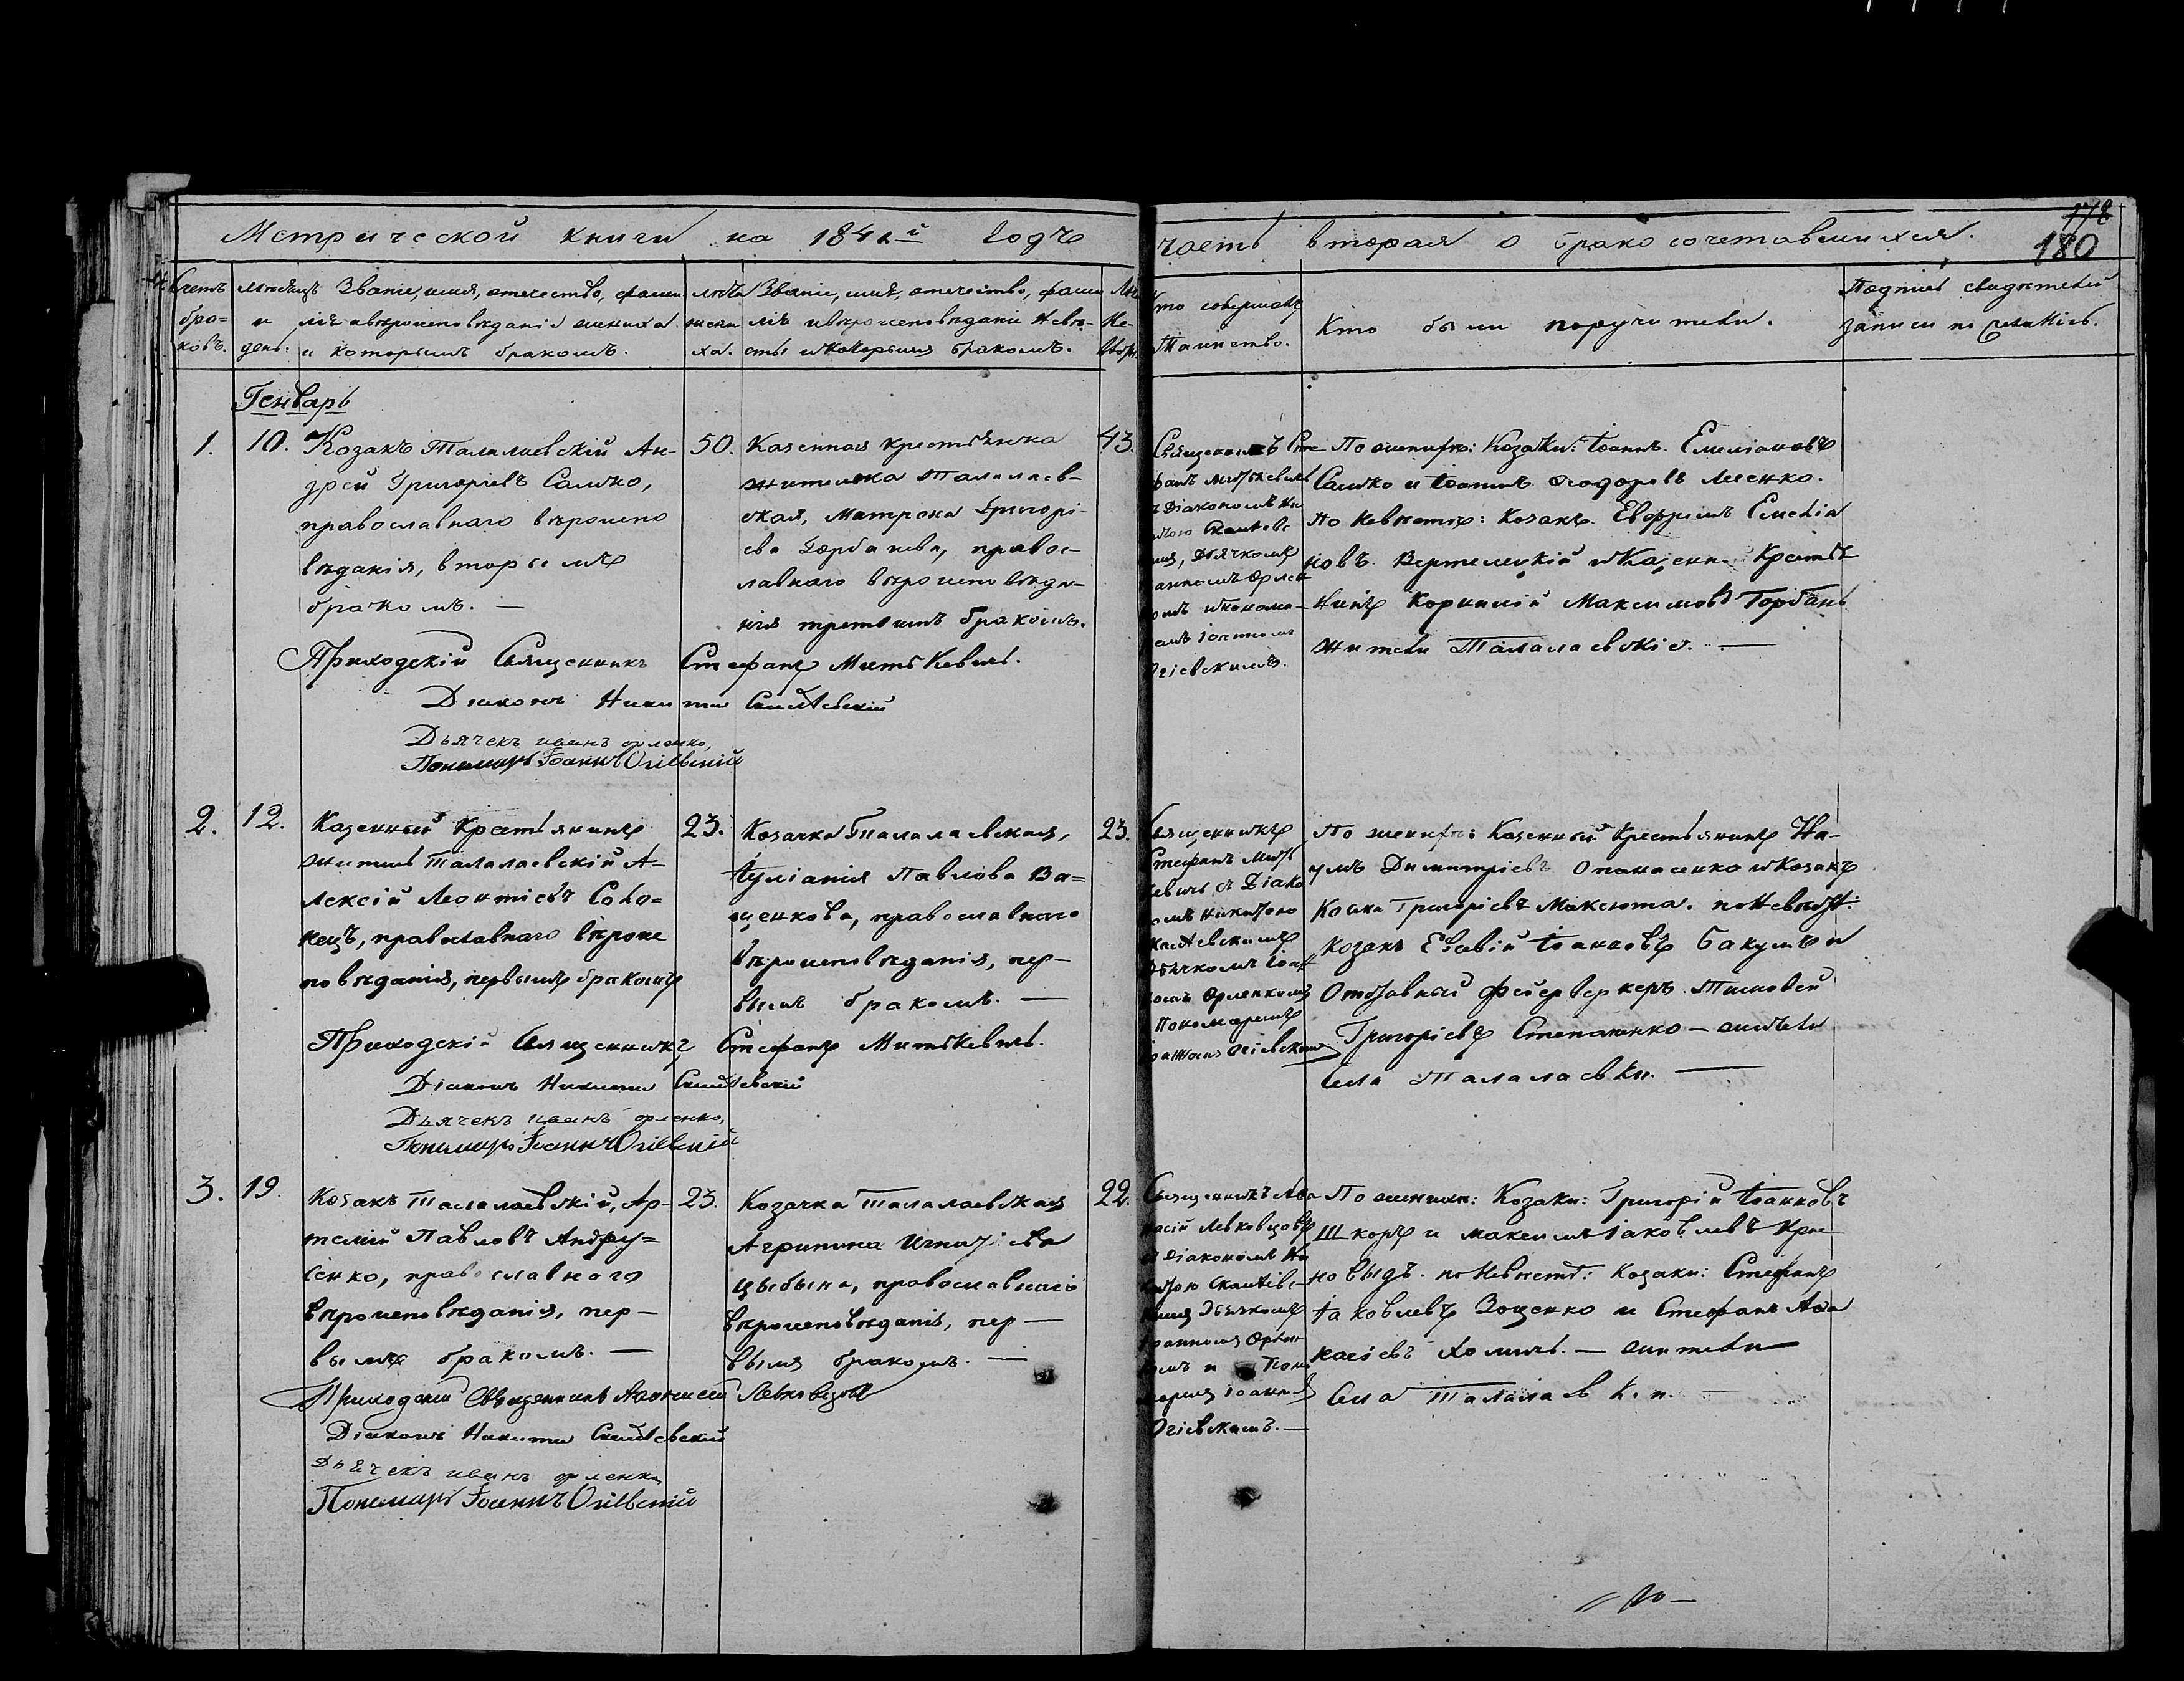 Метрической книги на 1842й годъ
часть вторая о бракосочетавшихся.
178
180
Счетъ бра=ковъ.
мѣсяцъ и день.
Званіе, имя, отечество, фами
лія и вѣроисповѣданіе жениха
и которымъ бракомъ.
лѣта жени
ха.
Званіе, имя, отечество, фами
лія и вѣроисповѣданіе невѣ-
сты и которымъ бракомъ.
Кто совершалъ
Таинство.
Кто были поручители.
Подпись свидѣтелей
записи по желанію.
Генварь
1.
10.
Козакъ Талалаевскій Ан-
дрей Григоріевъ Сашко,
православнаго вѣроиспо
вѣданія, вторымъ
бракомъ. —
50.
Казенная крестьянка
жителька Талалаев-
ская, Матрона Григорі-
ева Горбанева, правос-
лавнаго вѣроисповѣда-
нія третьимъ бракомъ.
43.
Священникъ Сте
фанъ Митькевичъ
съ Діакономъ Ни
Дьячкомъ
Огіевскимъ.
По жениху: Козаки: Іоаннъ Емеліановъ
Сашко и Іоаннъ Ѳеодоровъ Лисенко.
По невѣстѣ: Козакъ Евфримъ Емеліа
новъ Вертелецкій и Казенн. Крестья
нинъ Корнилій Максимовъ Горбань
жители Талалаевскіе. —
Приходскій Священникъ Стефанъ Митькевичъ.
Діаконъ Никита
Дьячекъ иванъ орленко,
Пономарь Іоаннъ Огіевскій
2.
12.
Казенный Крестьянинъ
житель Талалаевскій А-
лексій Леонтіевъ Соло=
нецъ, православнаго вѣроис
повѣданія, первымъ бракомъ
23.
Козачка Талалаевская,
Іуліанія Павлова Ва=
щенкова, православнаго
вѣроисповѣданія, пер-
вымъ бракомъ. —
23.
Священникъ
Стефанъ Мить
кевичъ съ Діако
номъ Никитою
Дьячкомъ Іоан
номъ Орленкомъ
Пономаремъ
Іоанномъ Огіевским
По жениху: Казенный Крестьянинъ На-
умъ Димитріевъ Опанасенко и Козакъ
Косма Григоріевъ Максюта. по невѣст:
Козакъ Евсевій Іоанновъ Бакумъ и
Отставный фейерверкеръ Тимовей
Григоріевъ Степаненко — жители
Села Талалаевки. —
Приходскій Священникъ Стефанъ Митькевичъ.
Діаконъ Никита
Дьячекъ иванъ орленко,
Пономарь Іоаннъ Огіевскій
3.
19.
Козакъ Талалаевскій, Ар-
темій Павловъ Андру=
сенко, православнаго
вѣроисповѣданія, пер-
вымъ бракомъ. —
23.
Козачка Талалаевская
Агрипина Игнатіева
Цыбына, православнаго
вѣроисповѣданія, пер-
вымъ бракомъ. —
22.
Священникъ Аѳа
насій Левковцовъ
съ діакономъ Ни
китою
Дьячкомъ
Іоанномъ Орлен
комъ и Поно
Огіевскимъ. —
По жених: Козаки: Григорій Іоанновъ
Шкоръ и Максимъ Іаковлевъ Кри
новыдъ. по Невѣст: Козаки: Стефанъ
Іаковлевъ Зощенко и Стефанъ Аѳа
насіевъ Хомичъ. — жители
Села Талалаевки.
Приходскій Священникъ Аѳанасій Левковцовъ
Діаконъ Никита
Дьячекъ иванъ орленко
Пономарь Іоаннъ Огіевскій